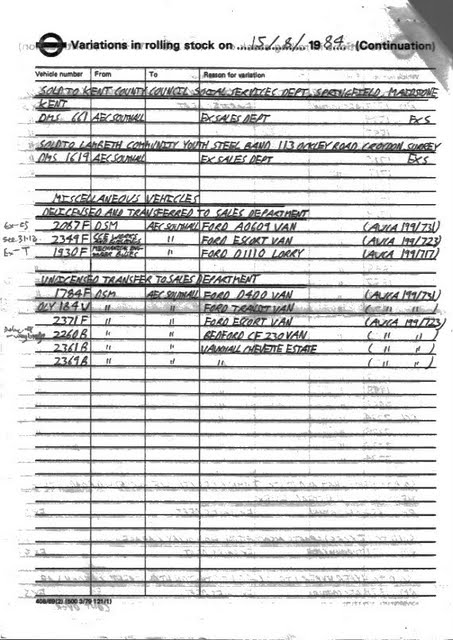 Variations in rolling stock on 15/8/ 1984 (Continuation)
Vehicle number From To Reason for variation
SOLD TO KENT COUNTY COUNCIL SOCIAL SERVICES DEPT, SPRINGFIELD, MAIDSTONE
KENT
DMS 661 AEC SOUTHALL EX SALES DEPT EXS
SOLD TO LAMBETH COMMUNITY YOUTH STEEL BAND 113 OCKLEY ROAD CROYDON SURREY
DMS 1619 AEC SOUTHALL EX SALES DEPT EXS
MISCELLANEOUS VEHICLES
DELICENSED AND TRANSFERRED TO SALES DEPARTMENT
2087F DSM AEC SOUTHALL FORD A0609 VAN (AUCA 199/731)
2349F " FORD ESCORT VAN (AUCA 199/723)
1930F " FORD D1110 LORRY (AUCA 199/717)
UNLICENSED TRANSFER TO SALES DEPARTMENT
1784F DSM AEC SOUTHALL FORD D400 VAN (AUCA 199/731)
OLY 184V " " FORD TRANSIT VAN ( " " )
2371F " " FORD ESCORT VAN (AUCA 199/723)
2260B " " BEDFORD CF 230 VAN ( " " )
2361B " " VAUXHALL CHEVETTE ESTATE ( " " )
2369B " " " ( " " )